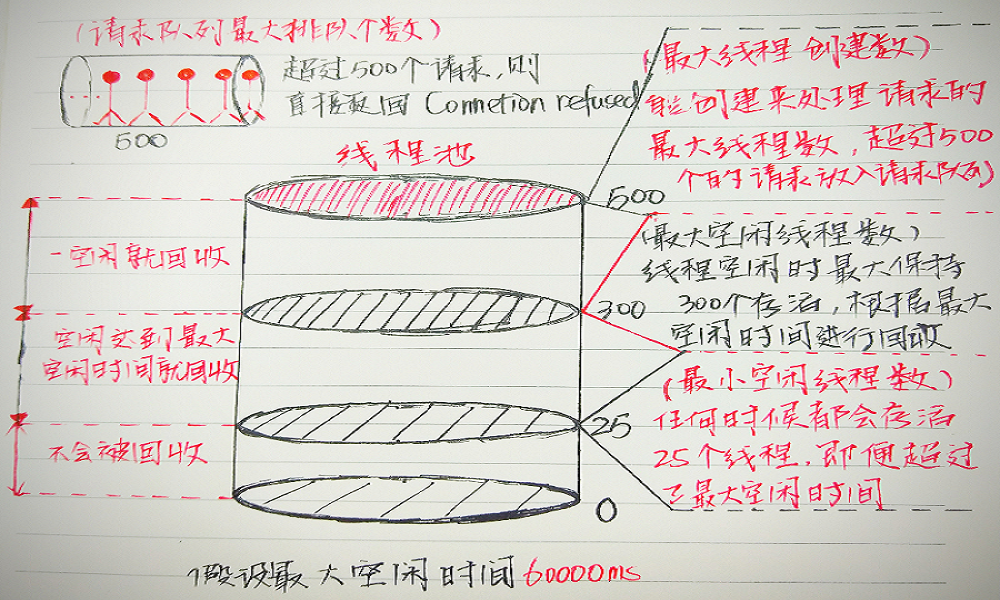 (请求队列最大排队个数)
超过500个请求,则
直接返回 Connetion refused
500
线程池
(最大线程创建数)
能创建来处理请求的
最大线程数,超过500
个的请求放入请求队列)
500
一空闲就回收
(最大空闲线程数)
线程空闲时最大保持
300个存活,根据最大
空闲时间进行回收
300
空闲达到最大
空闲时间就回收
(最小空闲线程数)
任何时候都会存活
25个线程,即便超过
了最大空闲时间
25
不会被回收
0
假设最大空闲时间60000ms